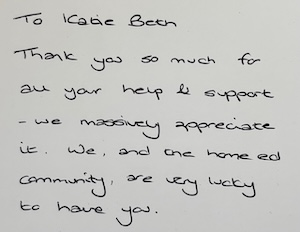 To Katie Beth
Thank you so much for
all your help & support
- we massively appreciate
it. We, and the home ed
community, are very lucky
to have you.